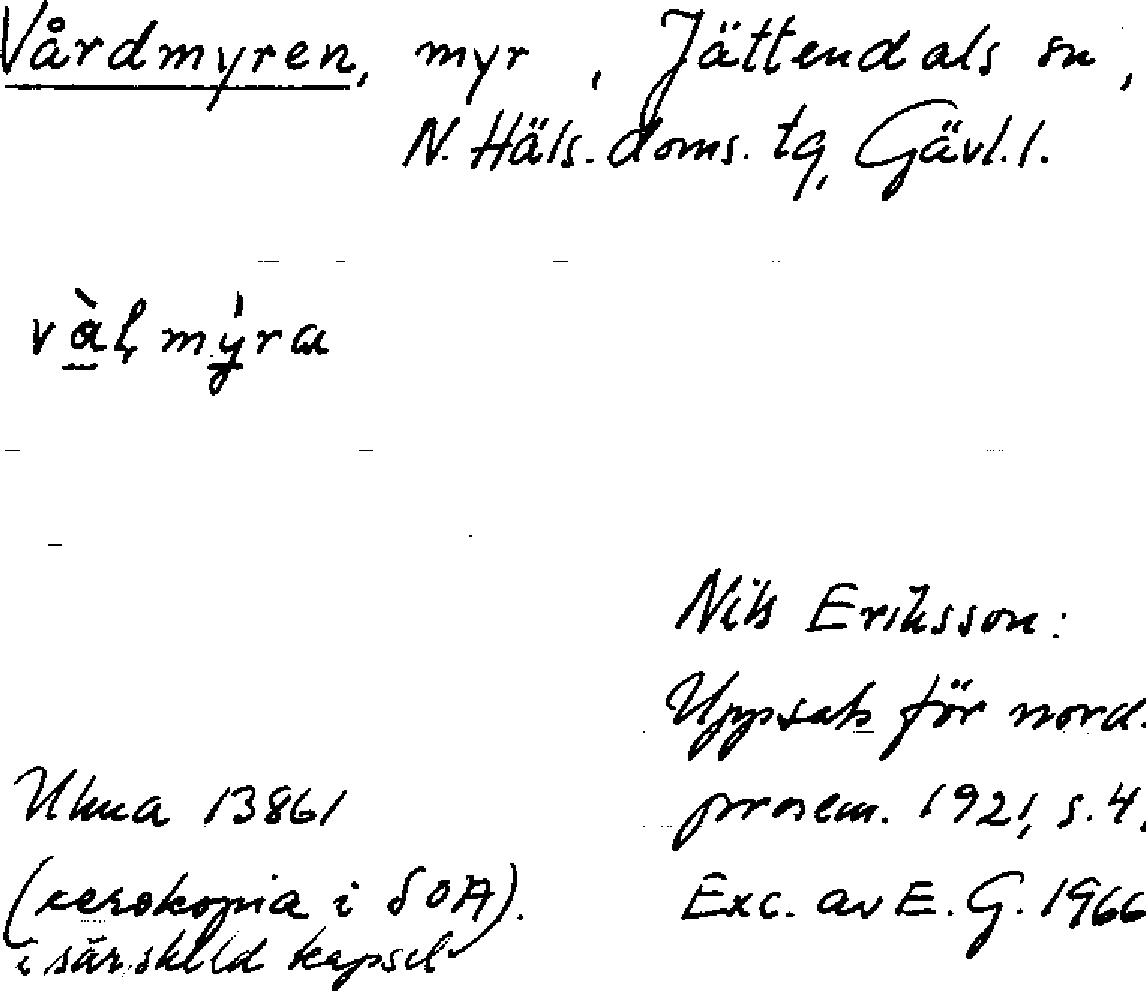 Vårdmyren, myr, Jättendals sn,
N. Häls. doms. tg, Gävl. l.
vàl, mýra
Nils Eriksson:
Uppsats för nord.
prosem. 1921, s. 4.
Exc. av E. G. 1966
Ulma 13861
(xerokopia i SOA).
i särskild kapsel